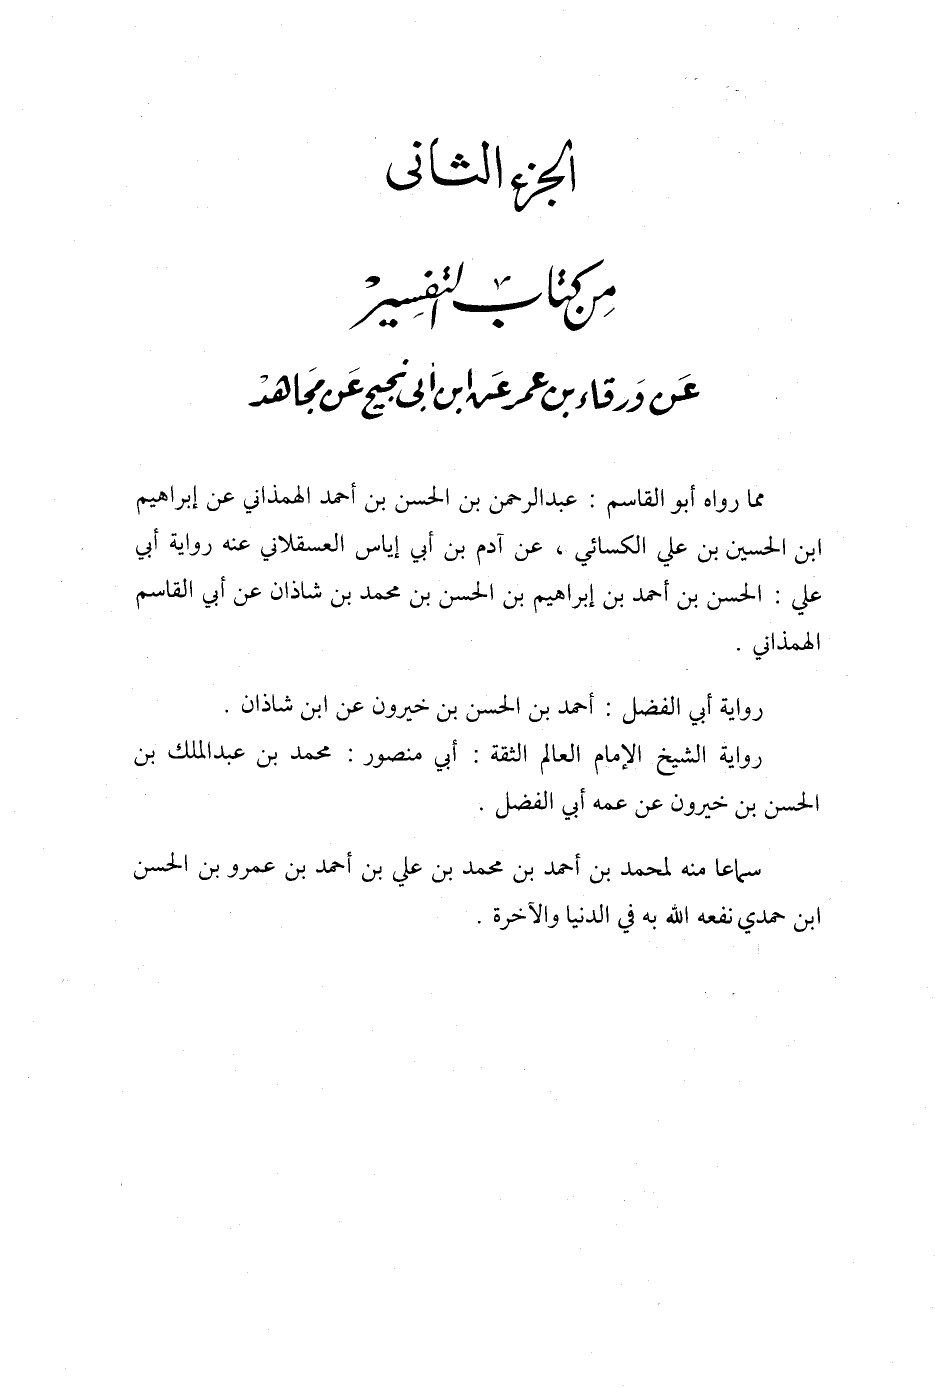 الجزء الثانى
مِن كتاب التفسير
عَن وَرقاء بن عمر عَن ابن أبى نجيح عَن مجَاهدْ
مما رواه أبو القاسم : عبدالرحمن بن الحسن بن أحمد الهمذاني عن إبراهيم
ابن الحسين بن علي الكسائي ، عن آدم بن أبي إياس العسقلاني عنه رواية أبي
علي : الحسن بن أحمد بن إبراهيم بن الحسن بن محمد بن شاذان عن أبي القاسم
الهمذاني .
رواية أبي الفضل : أحمد بن الحسن بن خيرون عن ابن شاذان .
رواية الشيخ الإمام العالم الثقة : أبي منصور : محمد بن عبدالملك بن
الحسن بن خيرون عن عمه أبي الفضل .
سماعا منه لمحمد بن أحمد بن محمد بن علي بن أحمد بن عمرو بن الحسن
ابن حمدي نفعه الله به في الدنيا والآخرة .